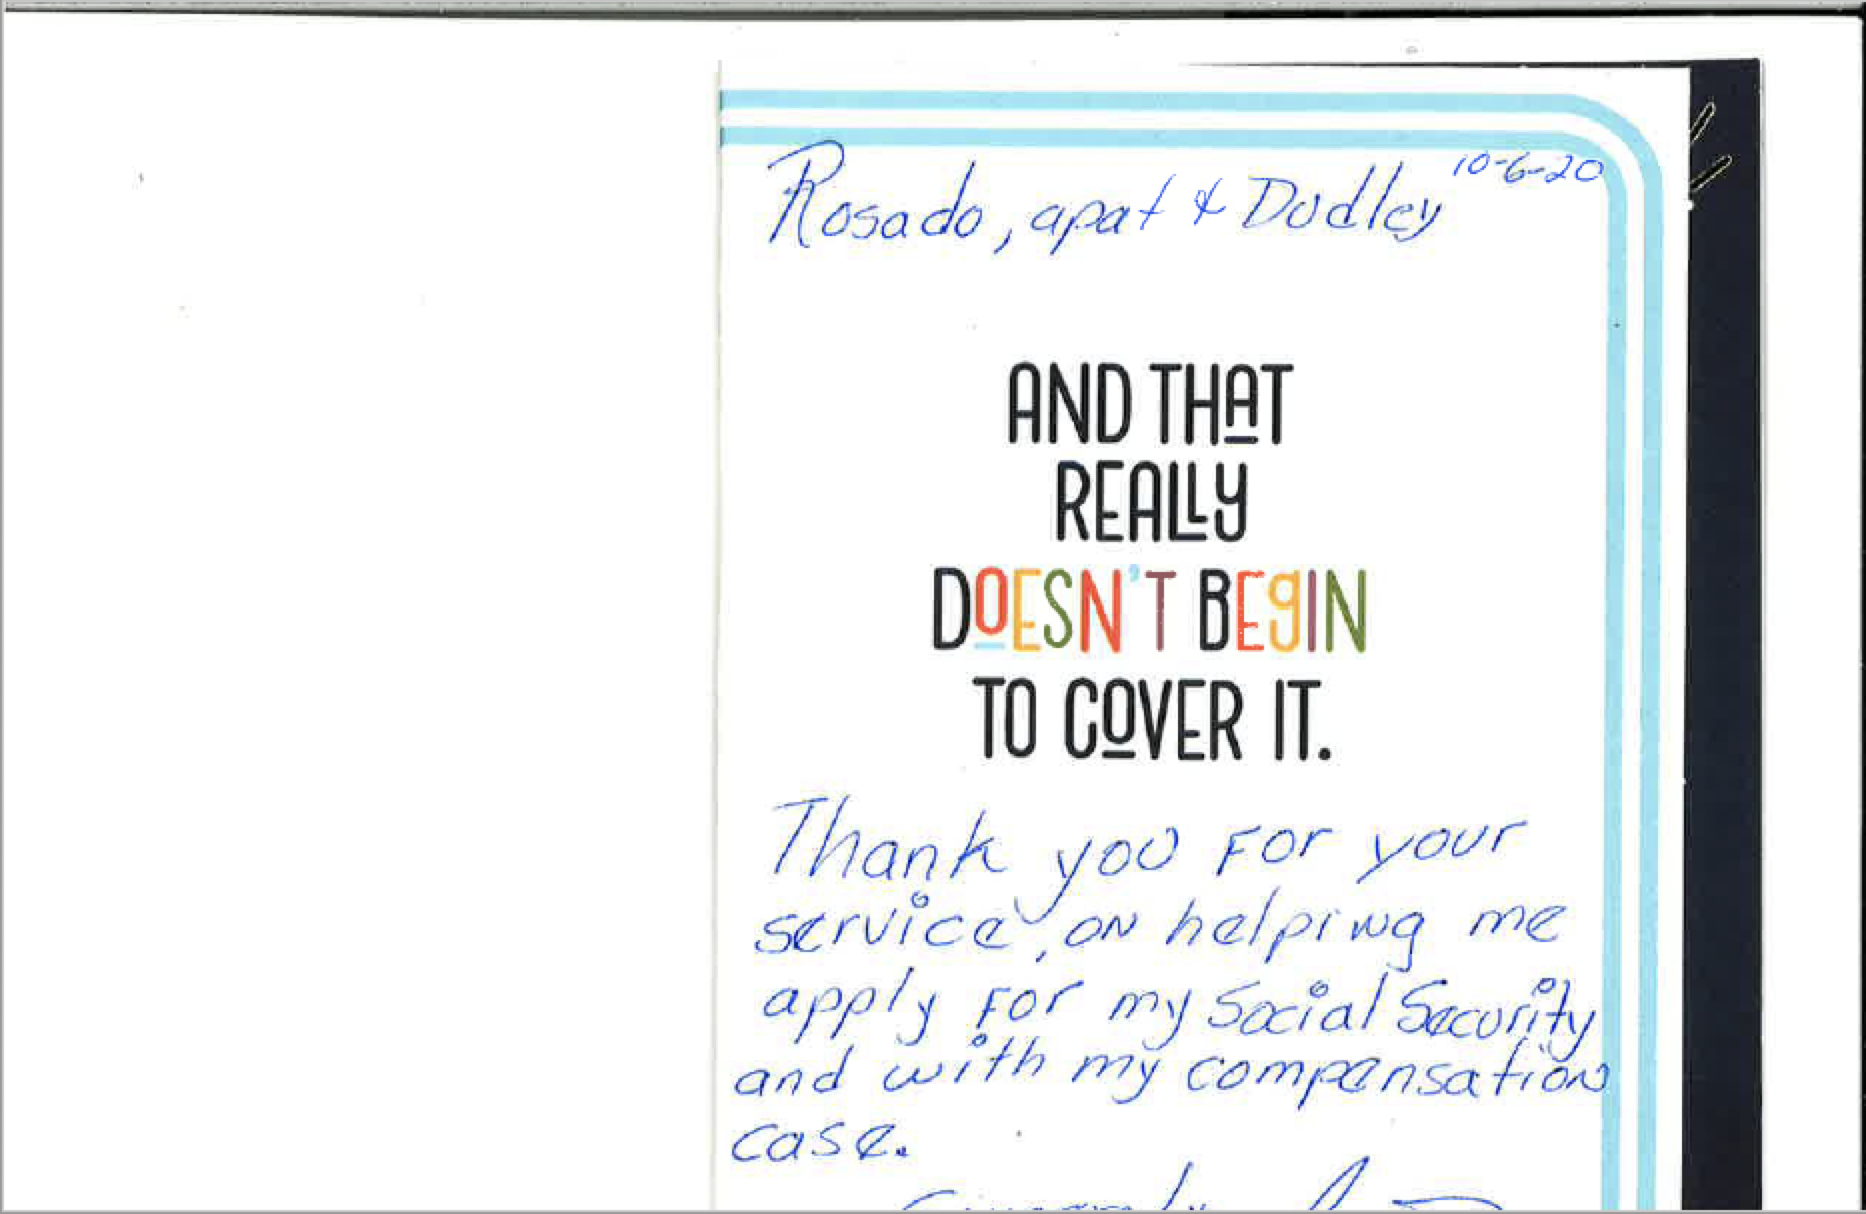 10-6-20
Rosado, apat & Dudley
AND THAT
REALLY
DOESN'T BEGIN
TO COVER IT.
Thank you For your
service, on helping me
apply For my Social Security
and with my compensation
case.